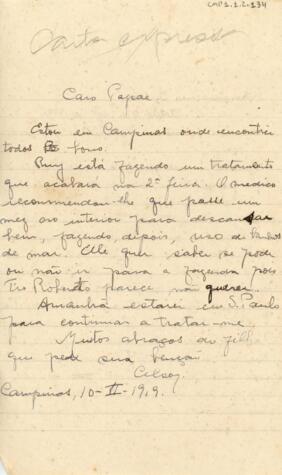 CMP 1.1.2.134
Carta expressa
Caro Papae
Estou em Campinas onde encontrei
todos bons.
Ruy está fazendo um tratamento
que acabará na 2ª feira. O medico
recommendou-lhe que passe um
mez no interior para descansar
bem, fazendo, depois, uso de banhos
de mar. Elle quer saber se pode
ou não ir para a fazenda pois
Tio Roberto parece não querer.
Amanhã estarei em S. Paulo
para continuar a tratar-me.
Muitos abraços do filho
que pede sua benção
Celso
Campinas, 10-II-919.